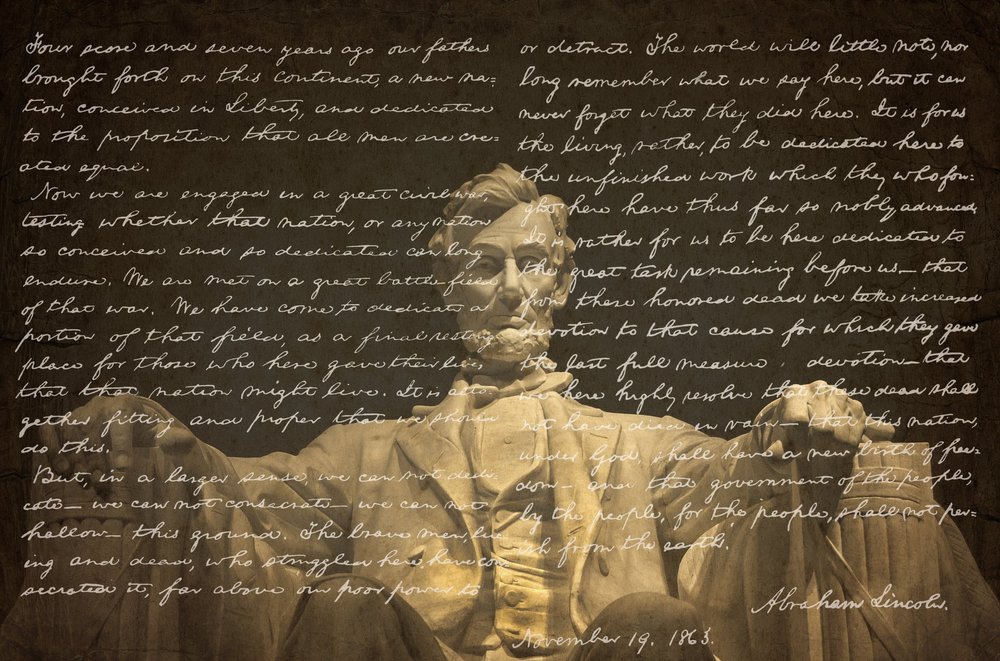 Four score and seven years ago our fathers
brought forth on this continent, a new na-
tion, conceived in Liberty, and dedicated
to the proposition that all men are cre-
ated equal.
Now we are engaged in a great civil war,
testing whether that nation, or any nation
so conceived and so dedicated can long
endure. We are met on a great battle-field
of that war. We have come to dedicate a
portion of that field, as a final resting
place for those who here gave their lives,
that that nation might live. It is alto-
gether fitting and proper that we should
do this.
But, in a larger sense, we can not dedi-
cate— we can not consecrate— we can not
hallow— this ground. The brave men, liv-
ing and dead, who struggled here, have con-
secrated it, far above our poor power to
or detract. The world will little note, nor
long remember what we say here, but it can
never forget what they did here. It is for us
the living, rather, to be dedicated here to
the unfinished work which they who fou-
ght here have thus far so nobly advanced.
It is rather for us to be here dedicated to
the great task remaining before us— that
from these honored dead we take increased
devotion to that cause for which they gave
the last full measure devotion— that
we here highly resolve that these dead shall
not have died in vain— that this nation,
under God, shall have a new birth of free-
dom— and that government of the people,
by the people, for the people, shall not per-
ish from the earth.
Abraham Lincoln.
November 19, 1863.